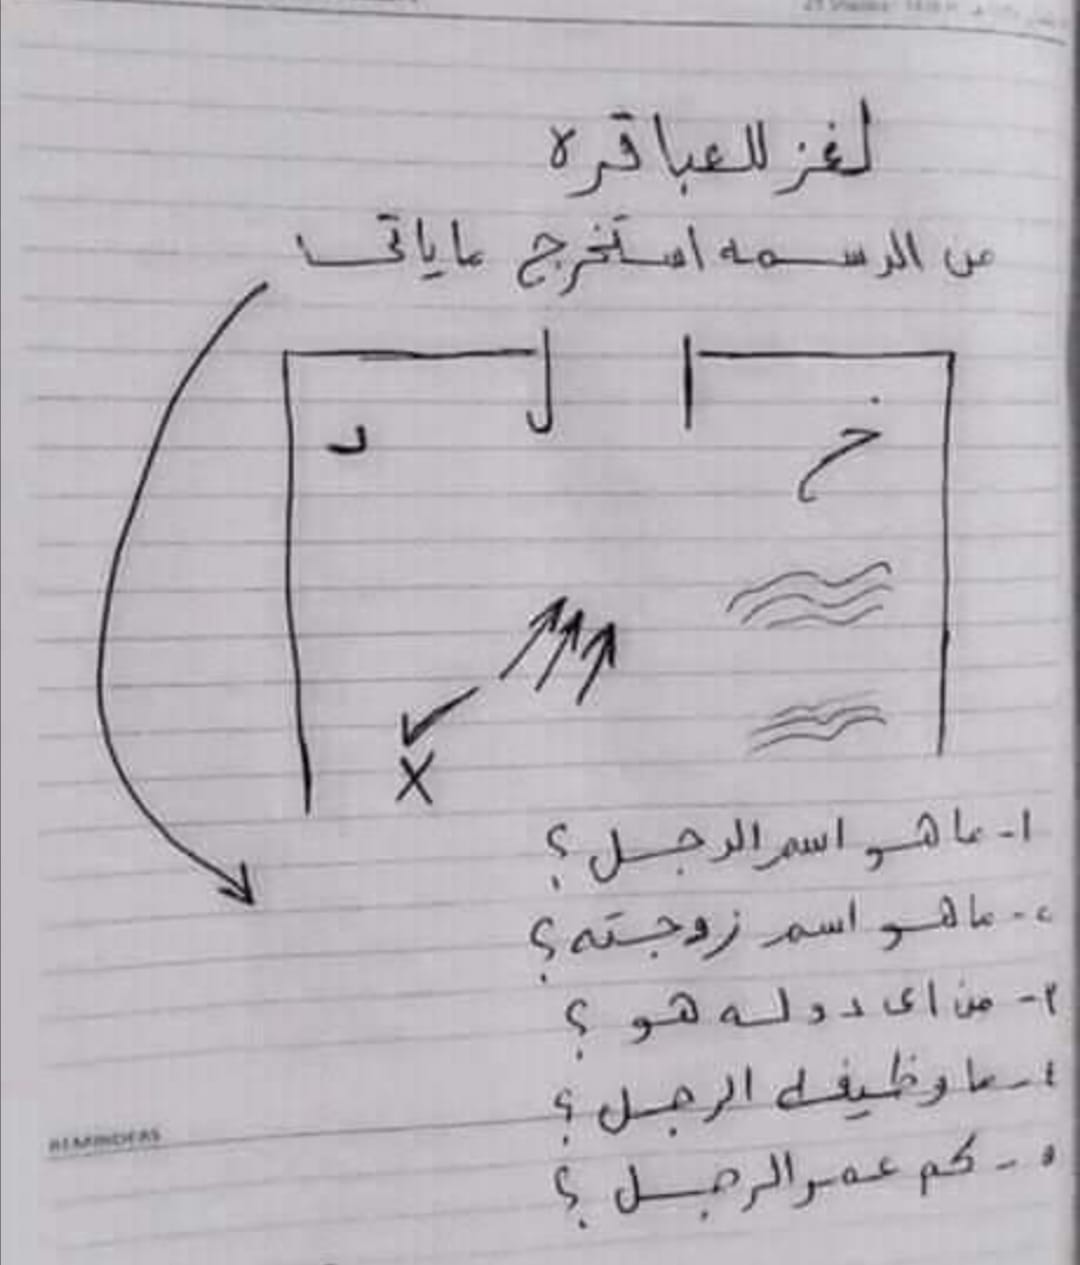 لغز للعباقره
من الرسمه استخرج ماياتى
خ ا ل د
X
١- ما هو اسم الرجل ؟
٢- ما هو اسم زوجته ؟
٣- من اى دوله هو ؟
٤- ما وظيفه الرجل ؟
٥- كم عمر الرجل ؟
REMINDERS